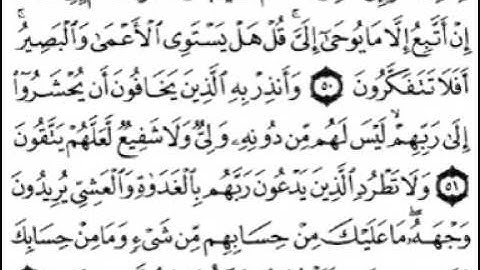 إِنْ أَتَّبِعُ إِلَّا مَا يُوحَىٰٓ إِلَىَّ ۚ قُلْ هَلْ يَسْتَوِى ٱلْأَعْمَىٰ وَٱلْبَصِيرُ ۚ
أَفَلَا تَتَفَكَّرُونَ ٥٠ وَأَنذِرْ بِهِ ٱلَّذِينَ يَخَافُونَ أَن يُحْشَرُوٓا۟
إِلَىٰ رَبِّهِمْ ۙ لَيْسَ لَهُم مِّن دُونِهِۦ وَلِىٌّ وَلَا شَفِيعٌ لَّعَلَّهُمْ يَتَّقُونَ
٥١ وَلَا تَطْرُدِ ٱلَّذِينَ يَدْعُونَ رَبَّهُم بِٱلْغَدَوٰةِ وَٱلْعَشِىِّ يُرِيدُونَ
وَجْهَهُۥ ۖ مَا عَلَيْكَ مِنْ حِسَابِهِم مِّن شَىْءٍ وَمَا مِنْ حِسَابِكَ